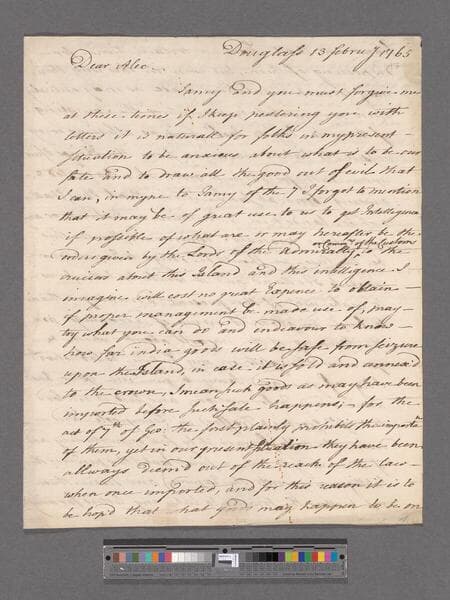 Douglass 13 febru'y 1765
Dear Alec
Jamy and you must forgive me
at these times if I keep pestering you with
letters it is naturall for folks in my present
situation to be anxious about what is to be our
fate and to draw all the good out of evil that
I can, in myne to Jamy of the 7 I forgot to mention
that it may be of great use to us to get Intelligence
if possible of what are or may hereafter be the
or Comm'rs of the Customs
orders given by the Lords of the admiralty to the
cruisers about this Island and this intelligence I
imagine will cost no great Expence to obtain
if proper management be made use of, may
try what you can do and endeavour to know
how far india goods will be safe from seizure
upon the Island, in case it is sold and annex'd
to the crown, I mean such goods as may have been
imported before such sale happens; for the
act of 7th of Geo: the first plainly prohibits the importn
of them, yet in our present situation they have been
allways deem'd out of the reach of the law
when once imported, and for this reason it is to
be hop'd that hat goods may happen to be on